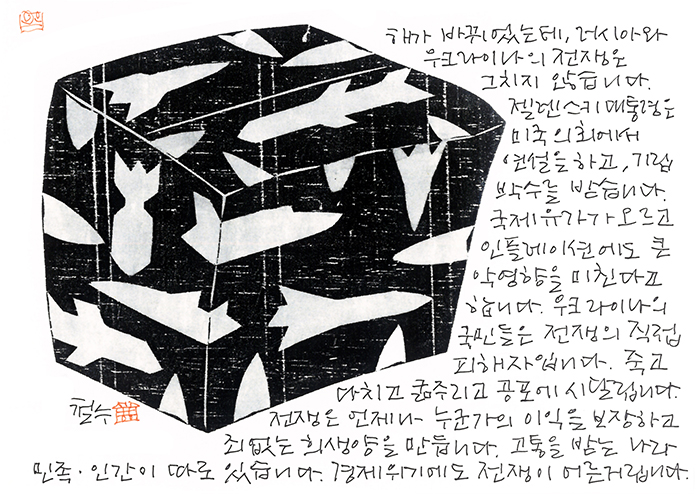 해가 바뀌었는데, 러시아와
우크라이나의 전쟁은
그치지 않습니다.
젤렌스키대통령은
미국 의회에서
연설을 하고, 기립
박수를 받습니다.
국제유가가 오르고
인플레이션에도 큰
악영향을 미친다고
합니다. 우크라이나의
국민들은 전쟁의 직접
피해자입니다. 죽고
다치고 굶주리고 공포에 시달립니다.
전쟁은 언제나 누군가의 이익을 보장하고
죄없는 희생양을 만듭니다. 고통을 받는 나라
민족·인간이 따로 있습니다. 경제위기에도 전쟁이 어른거립니다.
철수